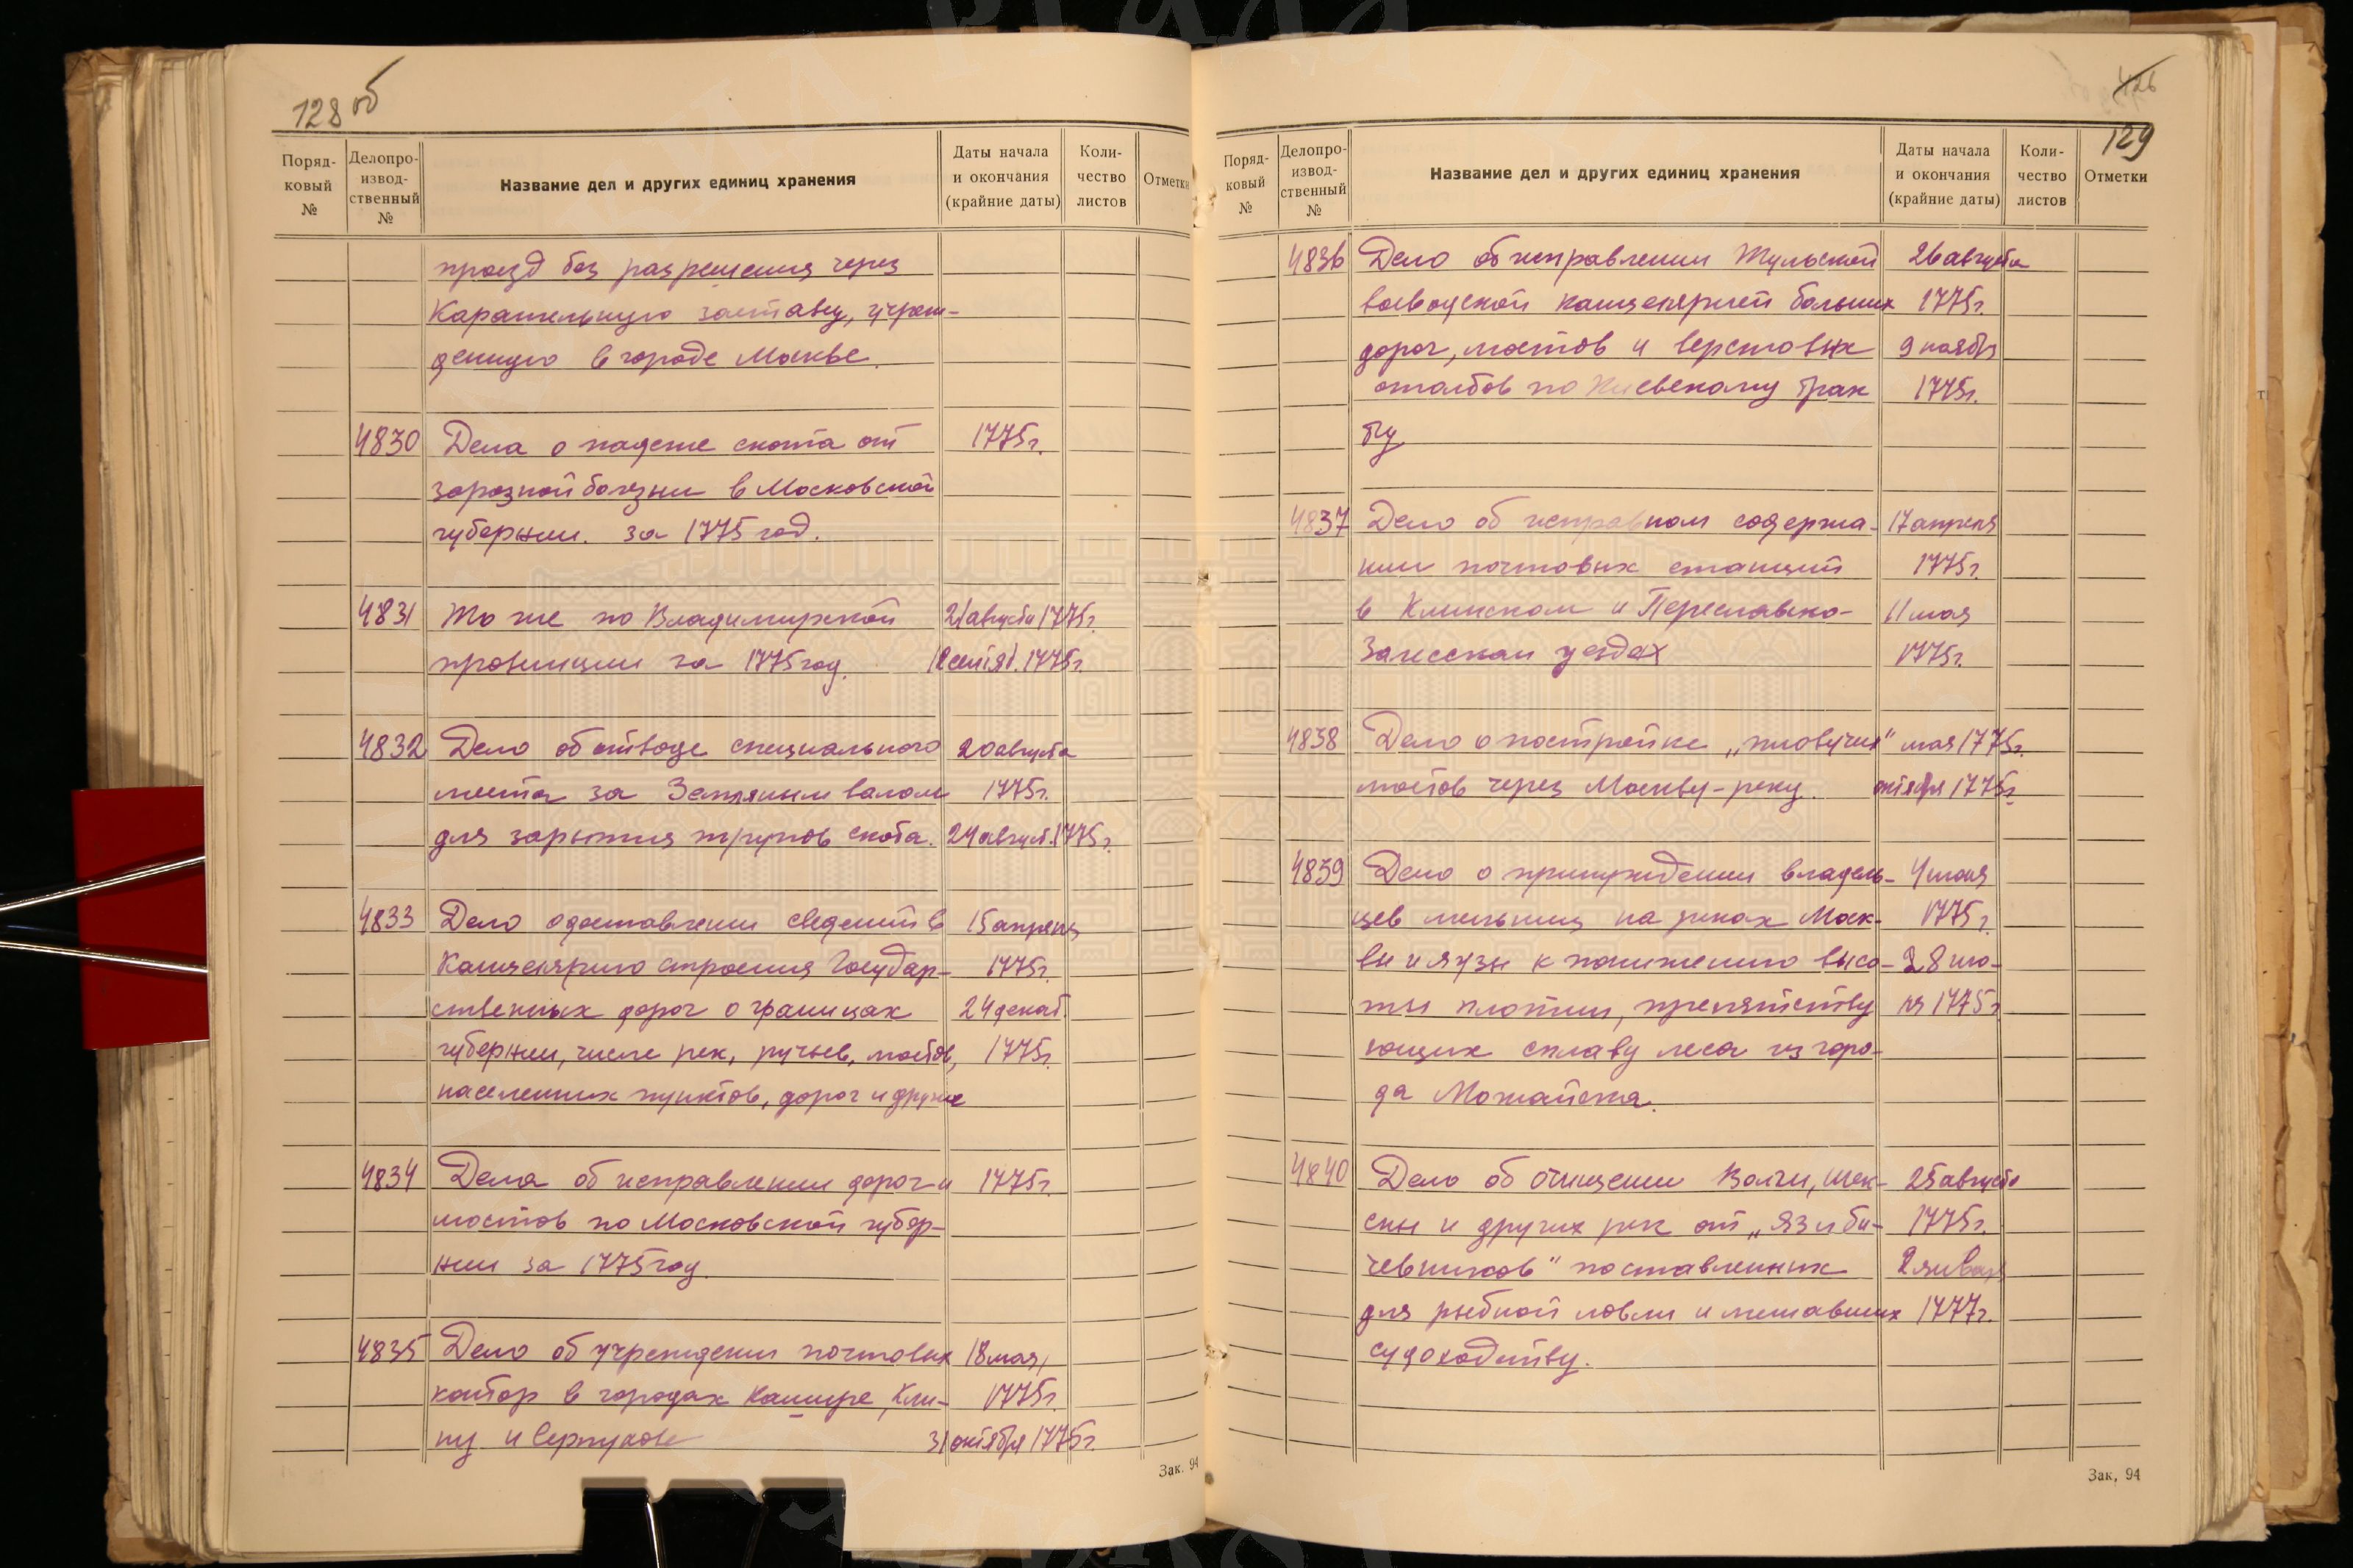 128 об
Поряд-
ковый
№
Делопро-
извод-
ственный
№
Название дел и других единиц хранения
Даты начала
и окончания
(крайние даты)
Коли-
чество
листов
Отметки
проезд без разрешения через
Карательную заставу, учреж-
денную в городе Москве.
4830 Дела о падеже скота от 1775 г.
заразной болезни в Московской
губернии. за 1775 год.
4831 То же по Владимирской 21 августа 1775 г.
провинции за 1775 год. 12 сентяб. 1775 г.
4832 Дело об отводе специального 20 августа
места за Земляным валом 1775 г.
для зарытия трупов скота. 24 август. 1775 г.
4833 Дело о доставлении сведений в 15 апреля
Канцелярию строения Государ- 1775 г.
ственных дорог о границах 24 декаб.
губернии, числе рек, ручьев, мостов, 1775 г.
населенных пунктов, дорог и другие
4834 Дела об исправлении дорог и 1775 г.
мостов по Московской губер-
нии за 1775 год.
4835 Дело об учреждении почтовых 18 мая
контор в городах Кашире, Кли- 1775 г.
ну и Серпухове 31 октября 1775 г.
Зак. 94
126
129
Поряд-
ковый
№
Делопро-
извод-
ственный
№
Название дел и других единиц хранения
Даты начала
и окончания
(крайние даты)
Коли-
чество
листов
Отметки
4836 Дело об исправлении Тульской 26 августа
воеводской канцелярией больших 1775 г.
дорог, мостов и верстовых 9 ноябр
столбов по Киевскому трак 1775 г.
ту
4837 Дело об исправном содержа- 17 апреля
нии почтовых станций 1775 г.
в Клинском и Переславско- 11 мая
Залесском уездах 1775 г.
4838 Дело о постройке „пловучих" мая 1775 г.
мостов через Москву-реку. октября 1775 г.
4839 Дело о принуждении владель- 4 июня
цев мельниц на реках Моск- 1775 г.
вы и Яузы к понижению высо- 28 ию-
ты плотин, препятству ля 1775 г.
ющих сплаву леса из горо-
да Можайска.
4840 Дело об очищении Волги, Шек- 25 августа
сны и других рек от „Яз и би- 1775 г.
чевников" поставленных 2 января
для рыбной ловли и мешавших 1777 г.
судоходству.
Зак. 94